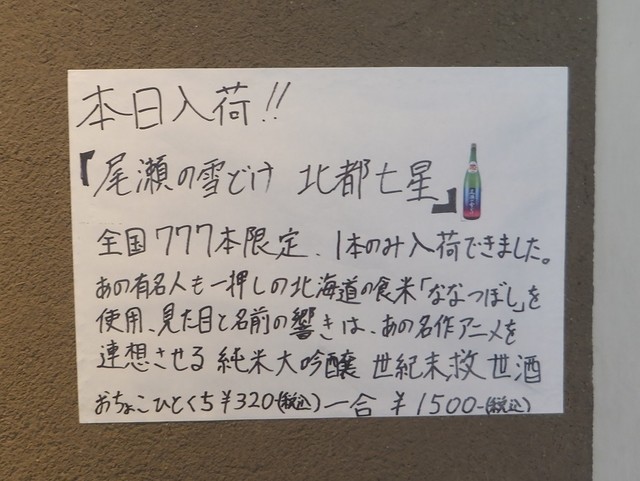 本日入荷!!
『尾瀬の雪どけ 北都七星』
全国777本限定、1本のみ入荷できました。
あの有名人も一押しの北海道の食米「ななつぼし」を
使用、見た目と名前の響きは、あの名作アニメを
連想させる 純米大吟醸 世紀末救世酒
おちょこひとくち¥320-(税込) 一合 ¥1500-(税込)